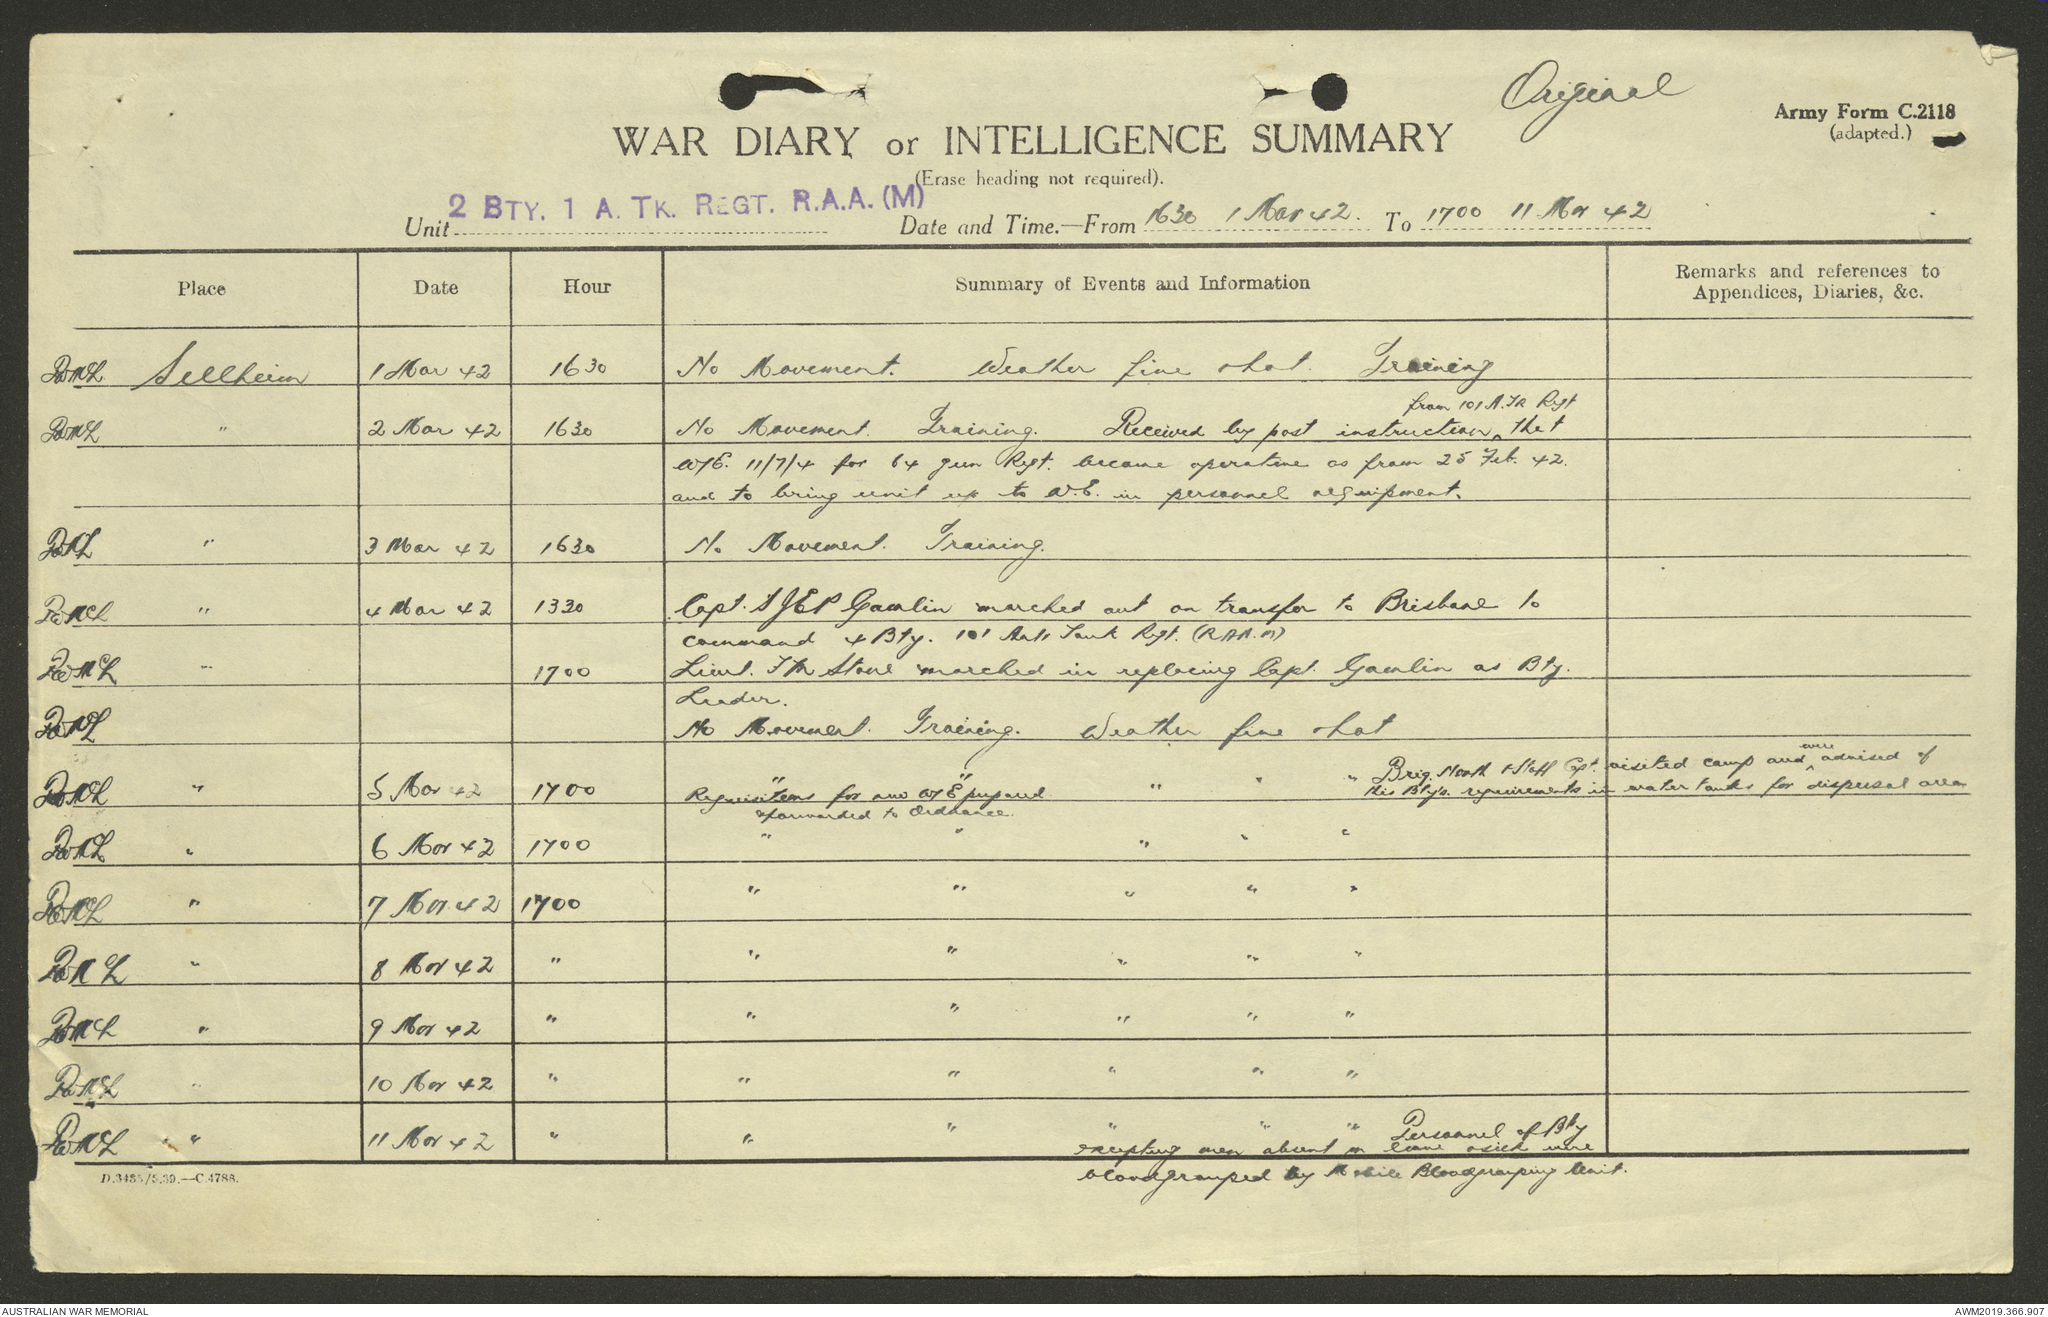 Original
Army Form C.2118
(adapted.)
WAR DIARY or INTELLIGENCE SUMMARY
(Erase heading not required).
Unit 2 BTY. 1 A. TK. REGT. R.A.A. (M) Date and Time.—From 1630 1 Mar 42. To 1700 11 Mar 42
Place Date Hour Summary of Events and Information Remarks and references to
Appendices, Diaries, &c.
Sellheim 1 Mar 42 1630 No Movement. Weather fine & hot. Training
from 101 A.Tk Regt
" 2 Mar 42 1630 No Movement. Training. Received by post instruction ^ that
W/E. 11/7/4 for 64 gun Regt. became operative as from 25 Feb. 42.
and to bring unit up to W.E. in personnel & equipment.
" 3 Mar 42 1630 No Movement. Training.
" 4 Mar 42 1330 Capt. SJEP Gamlin marched out on transfer to Brisbane to
command 4 Bty. 101 Anti Tank Regt. (RAA. M)
" 1700 Lieut. Stone marched in replacing Capt. Gamlin as Bty.
Leader.
No Movement. Training. Weather fine & hot
" 5 Mar 42 1700 " " " " " Brig. North & Staff Capt. visited camp and ^ were advised of
this Bty's. requirements in water tanks for dispersal area
Requisitions for new W/E prepared
& forwarded to Ordnance.
" 6 Mar 42 1700 " " " " "
" 7 Mar 42 1700 " " " " "
" 8 Mar 42 " " " " " "
" 9 Mar 42 " " " " " "
" 10 Mar 42 " " " " " "
" 11 Mar 42 " " " " " " Personnel of Bty
excepting men absent on leave & sick were
bloodgrouped by Mobile Bloodgrouping Unit.
D.3435/5.39.—C.4788.
AUSTRALIAN WAR MEMORIAL AWM2019.366.907